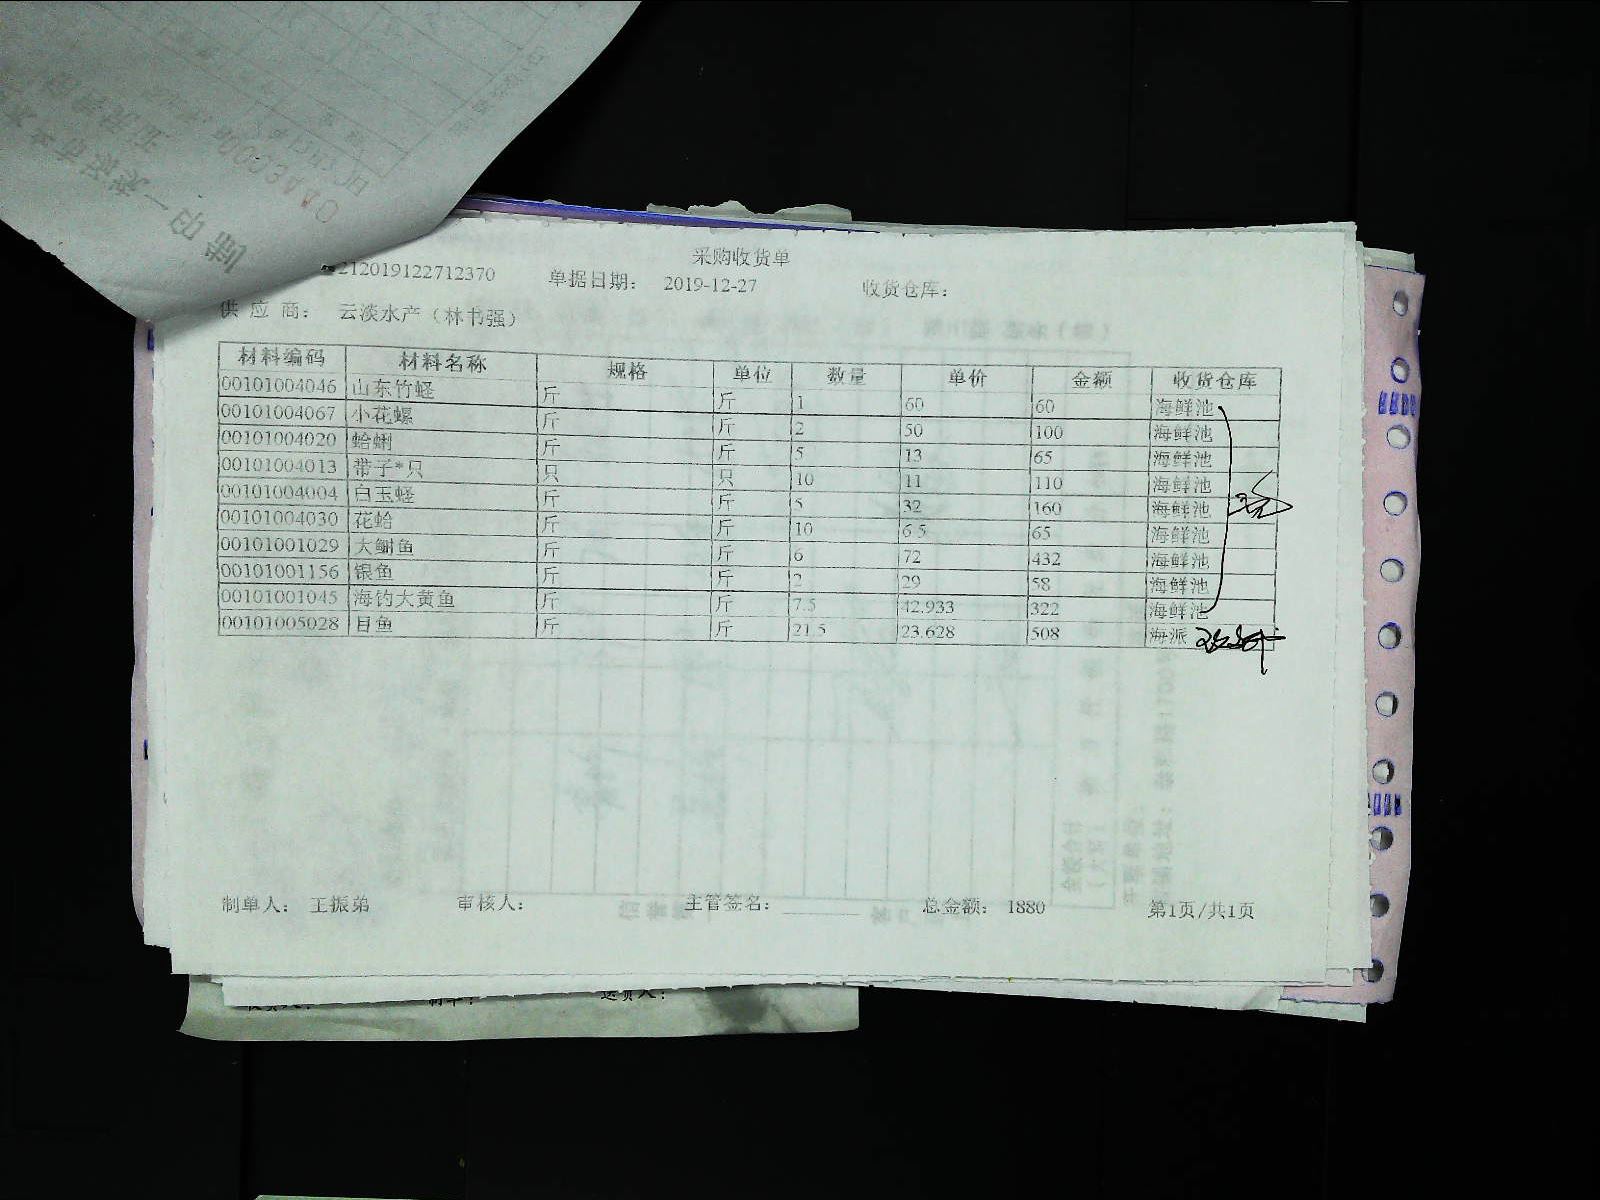 采购收货单
212019122712370 单据日期: 2019-12-27 收货仓库:
供 应 商: 云淡水产（林书强）
材料编码 材料名称 规格 单位 数量 单价 金额 收货仓库
00101004046 山东竹蛏 斤 斤 1 60 60 海鲜池
00101004067 小花螺 斤 斤 2 50 100 海鲜池
00101004020 蛤蜊 斤 斤 5 13 65 海鲜池
00101004013 带子*只 只 只 10 11 110 海鲜池
00101004004 白玉蛏 斤 斤 5 32 160 海鲜池
00101004030 花蛤 斤 斤 10 6.5 65 海鲜池
00101001029 大鲥鱼 斤 斤 6 72 432 海鲜池
00101001156 银鱼 斤 斤 2 29 58 海鲜池
00101001045 海钓大黄鱼 斤 斤 7.5 42.933 322 海鲜池
00101005028 目鱼 斤 斤 21.5 23.628 508 海派
制单人: 王振弟 审核人: 主管签名: 总金额: 1880 第1页/共1页